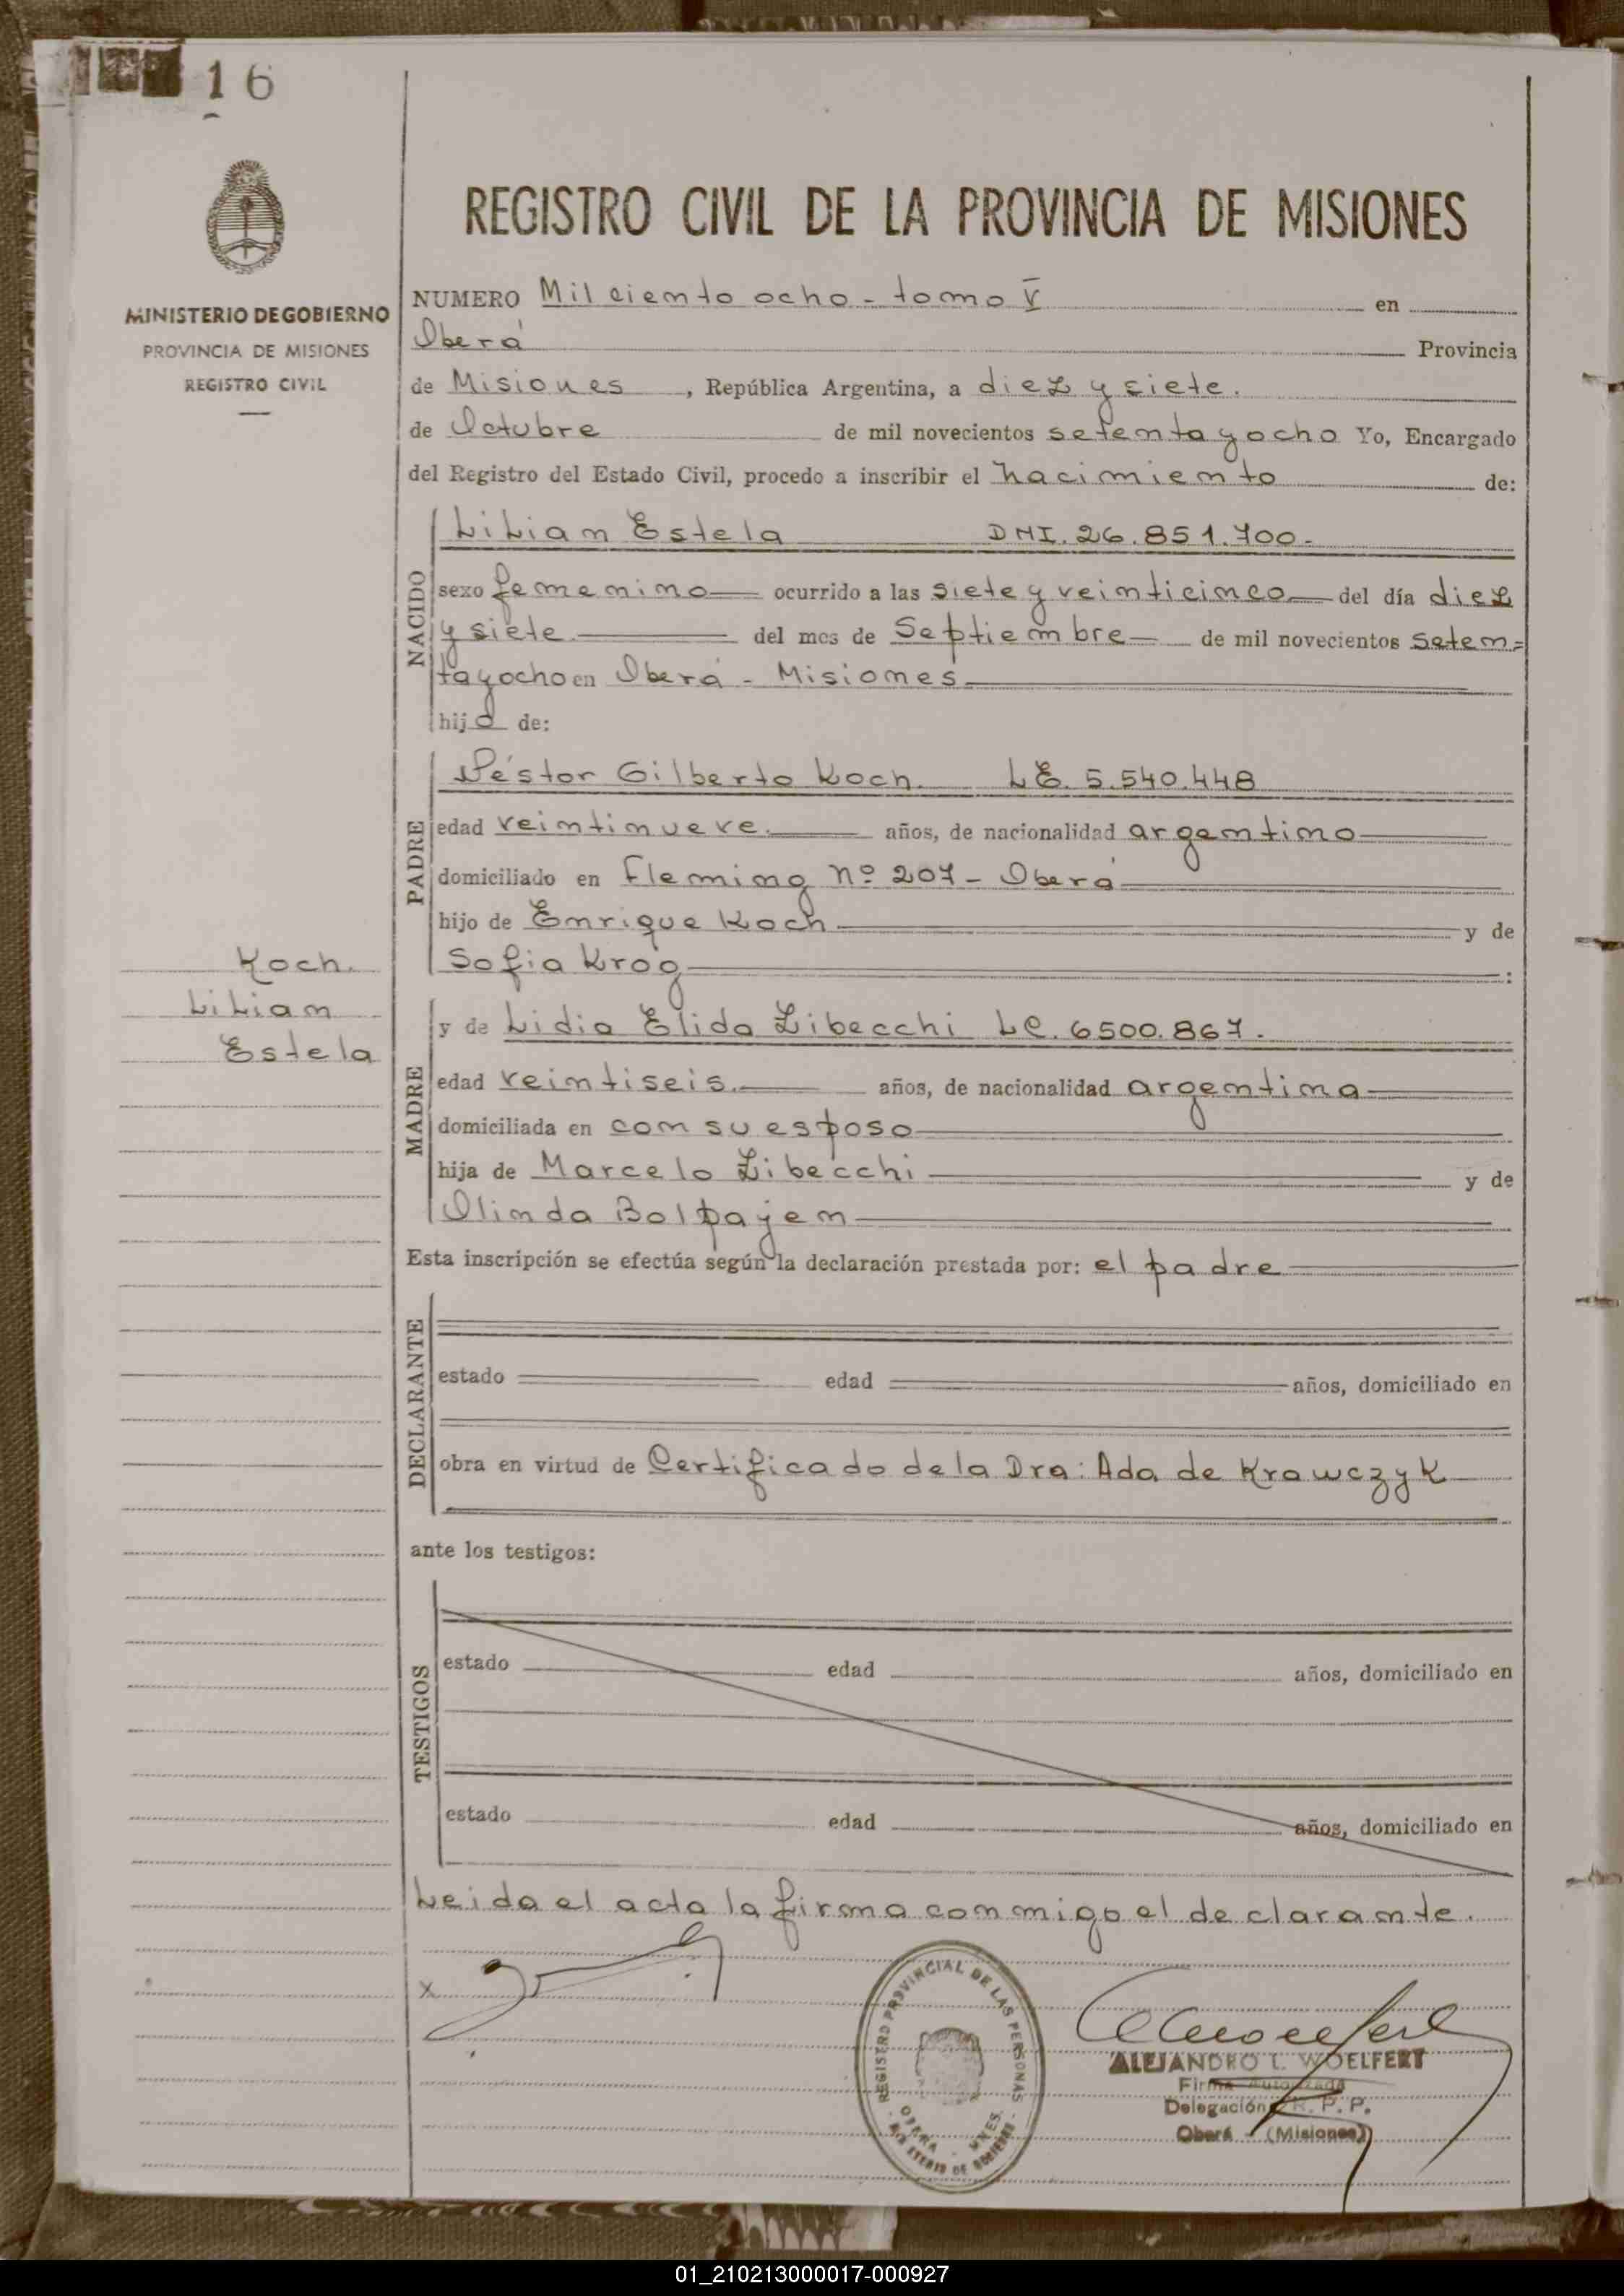 16
MINISTERIO DE GOBIERNO
PROVINCIA DE MISIONES
REGISTRO CIVIL
REGISTRO CIVIL DE LA PROVINCIA DE MISIONES
NUMERO Mil ciento ocho - tomo V en
Oberá Provincia
de Misiones, República Argentina, a diez y siete.
de Octubre de mil novecientos setenta y ocho Yo, Encargado
del Registro del Estado Civil, procedo a inscribir el nacimiento de:
NACIDO
Lilian Estela DNI. 26.851.700.-
sexo femenino ocurrido a las siete y veinticinco del día diez
y siete del mes de Septiembre de mil novecientos seten=
ta y ocho en Oberá - Misiones
hija de:
PADRE
Néstor Gilberto Koch. LE. 5.540.448
edad veintinueve. años, de nacionalidad argentino
domiciliado en Fleming nº 207 - Oberá
hijo de Enrique Koch y de
Sofia Krog :
Koch.
Lilian
Estela
MADRE
y de Lidia Elida Libecchi LC. 6500.867.
edad veintiseis. años, de nacionalidad argentina
domiciliada en con su esposo
hija de Marcelo Libecchi y de
Olinda Bolpayen
Esta inscripción se efectúa según la declaración prestada por: el padre
DECLARANTE
estado edad años, domiciliado en
obra en virtud de Certificado de la Dra: Ada de Krawczyk
ante los testigos:
TESTIGOS
estado edad años, domiciliado en
estado edad años, domiciliado en
Leida el acta la firma conmigo el declarante.
x
REGISTRO PROVINCIAL DE LAS PERSONAS
OBERA - MNES.
MINISTERIO DE GOBIERNO
ALEJANDRO L. WOELFERT
Firma Autorizada
Delegación R. P. P.
Oberá - (Misiones)
01_210213000017-000927